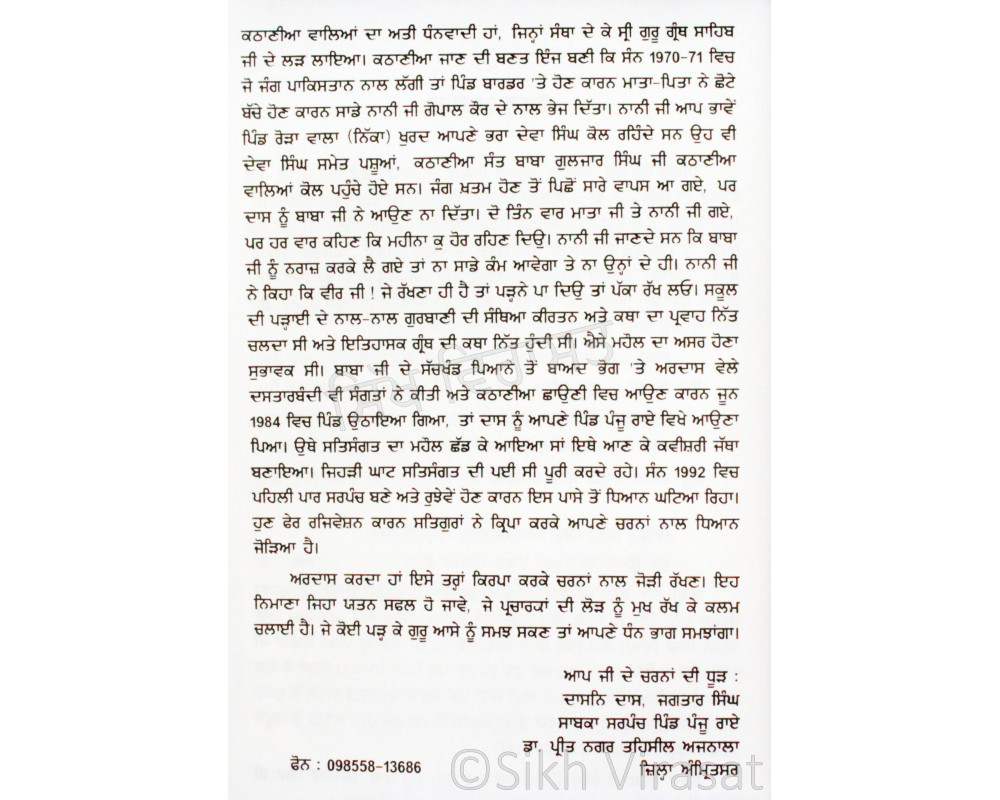 ਕਠਾਣੀਆ ਵਾਲਿਆਂ ਦਾ ਅਤੀ ਧੰਨਵਾਦੀ ਹਾਂ, ਜਿਨ੍ਹਾਂ ਸੰਥਾ ਦੇ ਕੇ ਸ੍ਰੀ ਗੁਰੂ ਗ੍ਰੰਥ ਸਾਹਿਬ
ਜੀ ਦੇ ਲੜ ਲਾਇਆ। ਕਠਾਣੀਆ ਜਾਣ ਦੀ ਬਣਤ ਇੰਜ ਬਣੀ ਕਿ ਸੰਨ 1970-71 ਵਿਚ
ਜੋ ਜੰਗ ਪਾਕਿਸਤਾਨ ਨਾਲ ਲੱਗੀ ਤਾਂ ਪਿੰਡ ਬਾਰਡਰ 'ਤੇ ਹੋਣ ਕਾਰਨ ਮਾਤਾ-ਪਿਤਾ ਨੇ ਛੋਟੇ
ਬੱਚੇ ਹੋਣ ਕਾਰਨ ਸਾਡੇ ਨਾਨੀ ਜੀ ਗੋਪਾਲ ਕੌਰ ਦੇ ਨਾਲ ਭੇਜ ਦਿੱਤਾ। ਨਾਨੀ ਜੀ ਆਪ ਭਾਵੇਂ
ਪਿੰਡ ਰੋੜਾ ਵਾਲਾ (ਨਿੱਕਾ) ਖੁਰਦ ਆਪਣੇ ਭਰਾ ਦੇਵਾ ਸਿੰਘ ਕੋਲ ਰਹਿੰਦੇ ਸਨ ਉਹ ਵੀ
ਦੇਵਾ ਸਿੰਘ ਸਮੇਤ ਪਸ਼ੂਆਂ, ਕਠਾਣੀਆ ਸੰਤ ਬਾਬਾ ਗੁਲਜਾਰ ਸਿੰਘ ਜੀ ਕਠਾਣੀਆ
ਵਾਲਿਆਂ ਕੋਲ ਪਹੁੰਚੇ ਹੋਏ ਸਨ। ਜੰਗ ਖ਼ਤਮ ਹੋਣ ਤੋਂ ਪਿਛੋਂ ਸਾਰੇ ਵਾਪਸ ਆ ਗਏ, ਪਰ
ਦਾਸ ਨੂੰ ਬਾਬਾ ਜੀ ਨੇ ਆਉਣ ਨਾ ਦਿੱਤਾ। ਦੋ ਤਿੰਨ ਵਾਰ ਮਾਤਾ ਜੀ ਤੇ ਨਾਨੀ ਜੀ ਗਏ,
ਪਰ ਹਰ ਵਾਰ ਕਹਿਣ ਕਿ ਮਹੀਨਾ ਕੁ ਹੋਰ ਰਹਿਣ ਦਿਉ। ਨਾਨੀ ਜੀ ਜਾਣਦੇ ਸਨ ਕਿ ਬਾਬਾ
ਜੀ ਨੂੰ ਨਰਾਜ਼ ਕਰਕੇ ਲੈ ਗਏ ਤਾਂ ਨਾ ਸਾਡੇ ਕੰਮ ਆਵੇਗਾ ਤੇ ਨਾ ਉਨ੍ਹਾਂ ਦੇ ਹੀ। ਨਾਨੀ ਜੀ
ਨੇ ਕਿਹਾ ਕਿ ਵੀਰ ਜੀ ! ਜੇ ਰੱਖਣਾ ਹੀ ਹੈ ਤਾਂ ਪੜ੍ਹਨੇ ਪਾ ਦਿਉ ਤਾਂ ਪੱਕਾ ਰੱਖ ਲਓ। ਸਕੂਲ
ਦੀ ਪੜ੍ਹਾਈ ਦੇ ਨਾਲ-ਨਾਲ ਗੁਰਬਾਣੀ ਦੀ ਸੰਥਿਆ ਕੀਰਤਨ ਅਤੇ ਕਥਾ ਦਾ ਪ੍ਰਵਾਹ ਨਿੱਤ
ਚਲਦਾ ਸੀ ਅਤੇ ਇਤਿਹਾਸਕ ਗ੍ਰੰਥ ਦੀ ਕਥਾ ਨਿੱਤ ਹੁੰਦੀ ਸੀ। ਐਸੇ ਮਹੌਲ ਦਾ ਅਸਰ ਹੋਣਾ
ਸੁਭਾਵਕ ਸੀ। ਬਾਬਾ ਜੀ ਦੇ ਸੱਚਖੰਡ ਪਿਆਨੇ ਤੋਂ ਬਾਅਦ ਭੋਗ 'ਤੇ ਅਰਦਾਸ ਵੇਲੇ
ਦਸਤਾਰਬੰਦੀ ਵੀ ਸੰਗਤਾਂ ਨੇ ਕੀਤੀ ਅਤੇ ਕਠਾਣੀਆ ਛਾਉਣੀ ਵਿਚ ਆਉਣ ਕਾਰਨ ਜੂਨ
1984 ਵਿਚ ਪਿੰਡ ਉਠਾਇਆ ਗਿਆ, ਤਾਂ ਦਾਸ ਨੂੰ ਆਪਣੇ ਪਿੰਡ ਪੰਜੂ ਰਾਏ ਵਿਖੇ ਆਉਣਾ
ਪਿਆ। ਉਥੇ ਸਤਿਸੰਗਤ ਦਾ ਮਹੌਲ ਛੱਡ ਕੇ ਆਇਆ ਸਾਂ ਇਥੇ ਆਣ ਕੇ ਕਵੀਸ਼ਰੀ ਜੱਥਾ
ਬਣਾਇਆ। ਜਿਹੜੀ ਘਾਟ ਸਤਿਸੰਗਤ ਦੀ ਪਈ ਸੀ ਪੂਰੀ ਕਰਦੇ ਰਹੇ। ਸੰਨ 1992 ਵਿਚ
ਪਹਿਲੀ ਪਾਰ ਸਰਪੰਚ ਬਣੇ ਅਤੇ ਰੁਝੇਵੇਂ ਹੋਣ ਕਾਰਨ ਇਸ ਪਾਸੇ ਤੋਂ ਧਿਆਨ ਘਟਿਆ ਰਿਹਾ।
ਹੁਣ ਫੇਰ ਰਜਿਵੇਸ਼ਨ ਕਾਰਨ ਸਤਿਗੁਰਾਂ ਨੇ ਕ੍ਰਿਪਾ ਕਰਕੇ ਆਪਣੇ ਚਰਨਾਂ ਨਾਲ ਧਿਆਨ
ਜੋੜਿਆ ਹੈ।
ਅਰਦਾਸ ਕਰਦਾ ਹਾਂ ਇਸੇ ਤਰ੍ਹਾਂ ਕਿਰਪਾ ਕਰਕੇ ਚਰਨਾਂ ਨਾਲ ਜੋੜੀ ਰੱਖਣ। ਇਹ
ਨਿਮਾਣਾ ਜਿਹਾ ਯਤਨ ਸਫਲ ਹੋ ਜਾਵੇ, ਜੇ ਪ੍ਰਚਾਰਕਾਂ ਦੀ ਲੋੜ ਨੂੰ ਮੁਖ ਰੱਖ ਕੇ ਕਲਮ
ਚਲਾਈ ਹੈ। ਜੇ ਕੋਈ ਪੜ੍ਹ ਕੇ ਗੁਰੂ ਆਸੇ ਨੂੰ ਸਮਝ ਸਕਣ ਤਾਂ ਆਪਣੇ ਧੰਨ ਭਾਗ ਸਮਝਾਂਗਾ।
ਆਪ ਜੀ ਦੇ ਚਰਨਾਂ ਦੀ ਧੂੜ :
ਦਾਸਨਿ ਦਾਸ, ਜਗਤਾਰ ਸਿੰਘ
ਸਾਬਕਾ ਸਰਪੰਚ ਪਿੰਡ ਪੰਜੂ ਰਾਏ
ਡਾ. ਪ੍ਰੀਤ ਨਗਰ ਤਹਿਸੀਲ ਅਜਨਾਲਾ
ਫੋਨ : 098558-13686 ਜ਼ਿਲ੍ਹਾ ਅੰਮ੍ਰਿਤਸਰ
ਸਿੱਖ ਵਿਰਾਸਤ
©Sikh Virasat